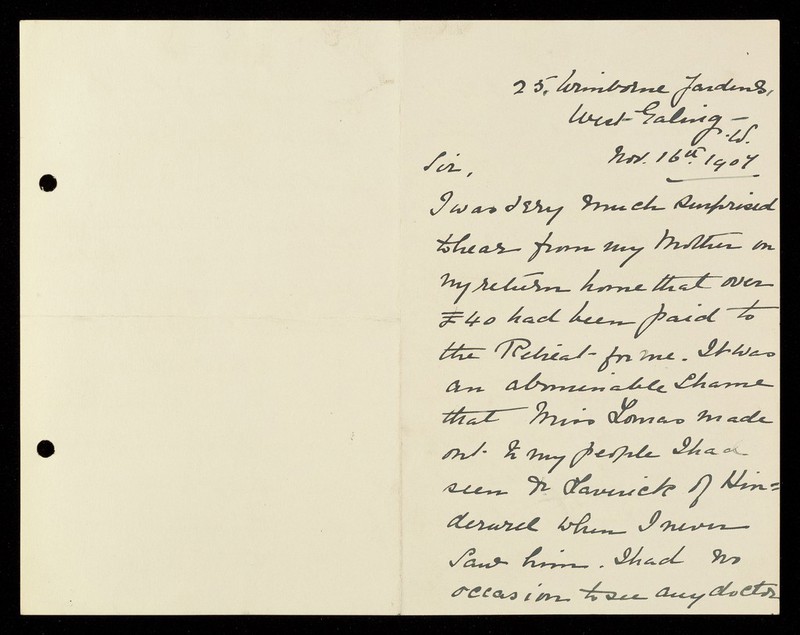 25, Wimborne Gardens,
West Ealing –
W.
Nov. 16th 1907
Sir,
I was very much surprised
to hear from my Mother on
my return home that over
£40 had been paid to
the Retreat for me. It was
an abominable shame
that Miss Lomas made
out to my people I had
seen Dr Laverick of Hin=
derwel when I never
saw him. I had no
occasion to see any doctor